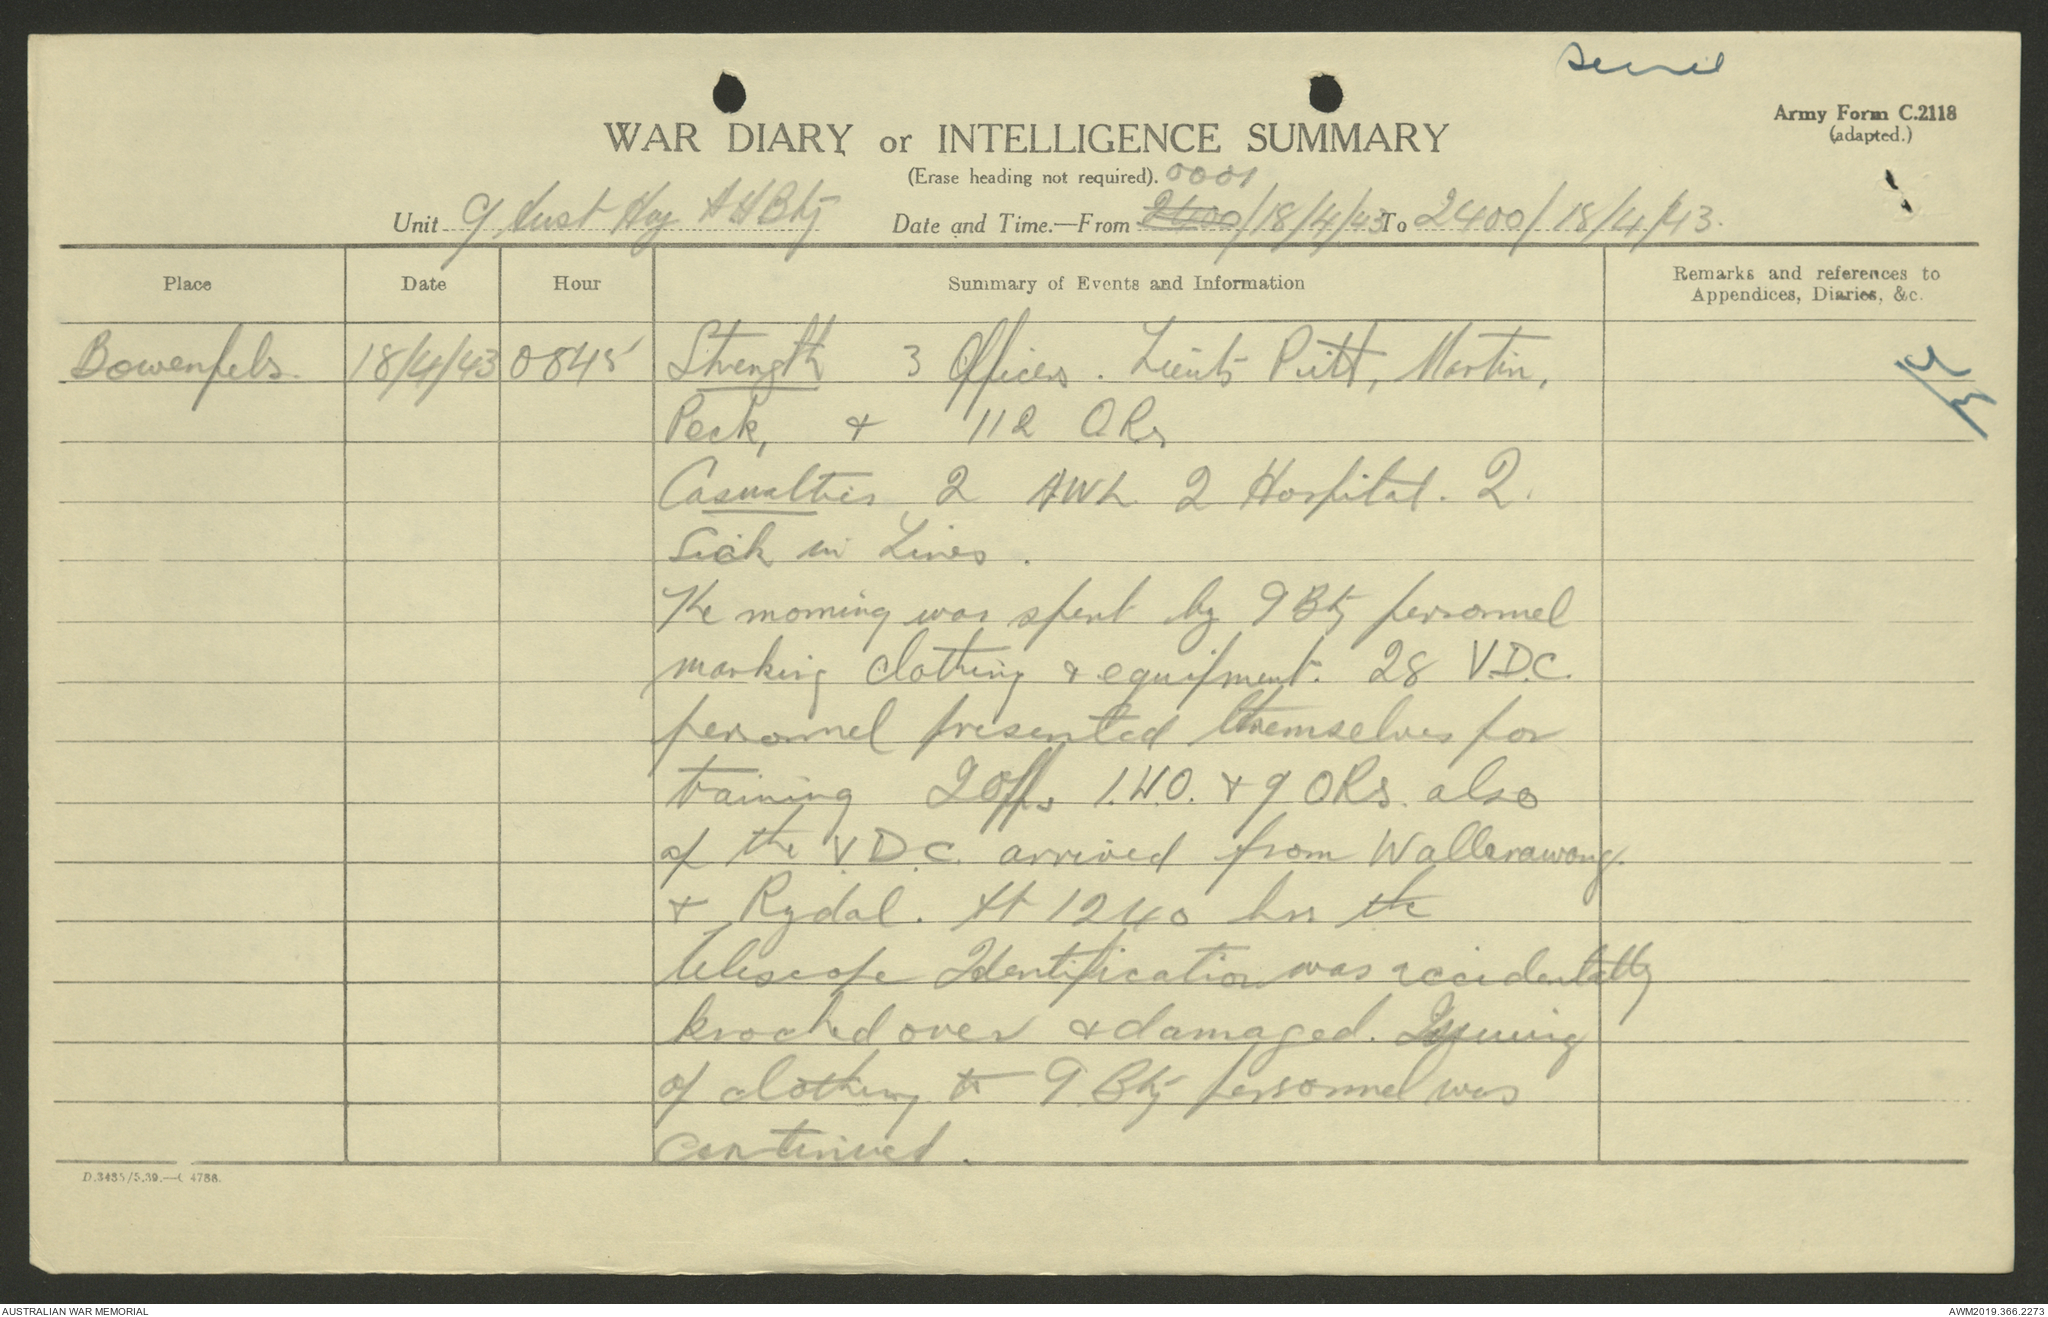 Army Form C.2118
(adapted.)
WAR DIARY or INTELLIGENCE SUMMARY
(Erase heading not required).
Unit 9 Aust Hvy AA Bty Date and Time.—From 2400 0001/18/4/43 To 2400/18/4/43.
Place Date Hour Summary of Events and Information Remarks and references to
Appendices, Diaries, &c.
Bowenfels. 18/4/43 0845 Strength 3 Officers. Lieuts Pitt, Martin,
Peck, & 112 ORs
Casualties 2 AWL 2 Hospital. 2.
Sick in Lines.
The morning was spent by 9 Bty personnel
marking clothing & equipment. 28 V.D.C.
personnel presented themselves for
training 2 Offs 1.W.O. & 9 ORs. also
of the V.D.C. arrived from Wallerawang.
& Rydal. At 1240 hrs the
telescope Identification was accidentally
knocked over & damaged. Issuing
of clothing to 9 Bty personnel was
continued.
D.3485/5.39.—C 4786.
AUSTRALIAN WAR MEMORIAL AWM2019.366.2273